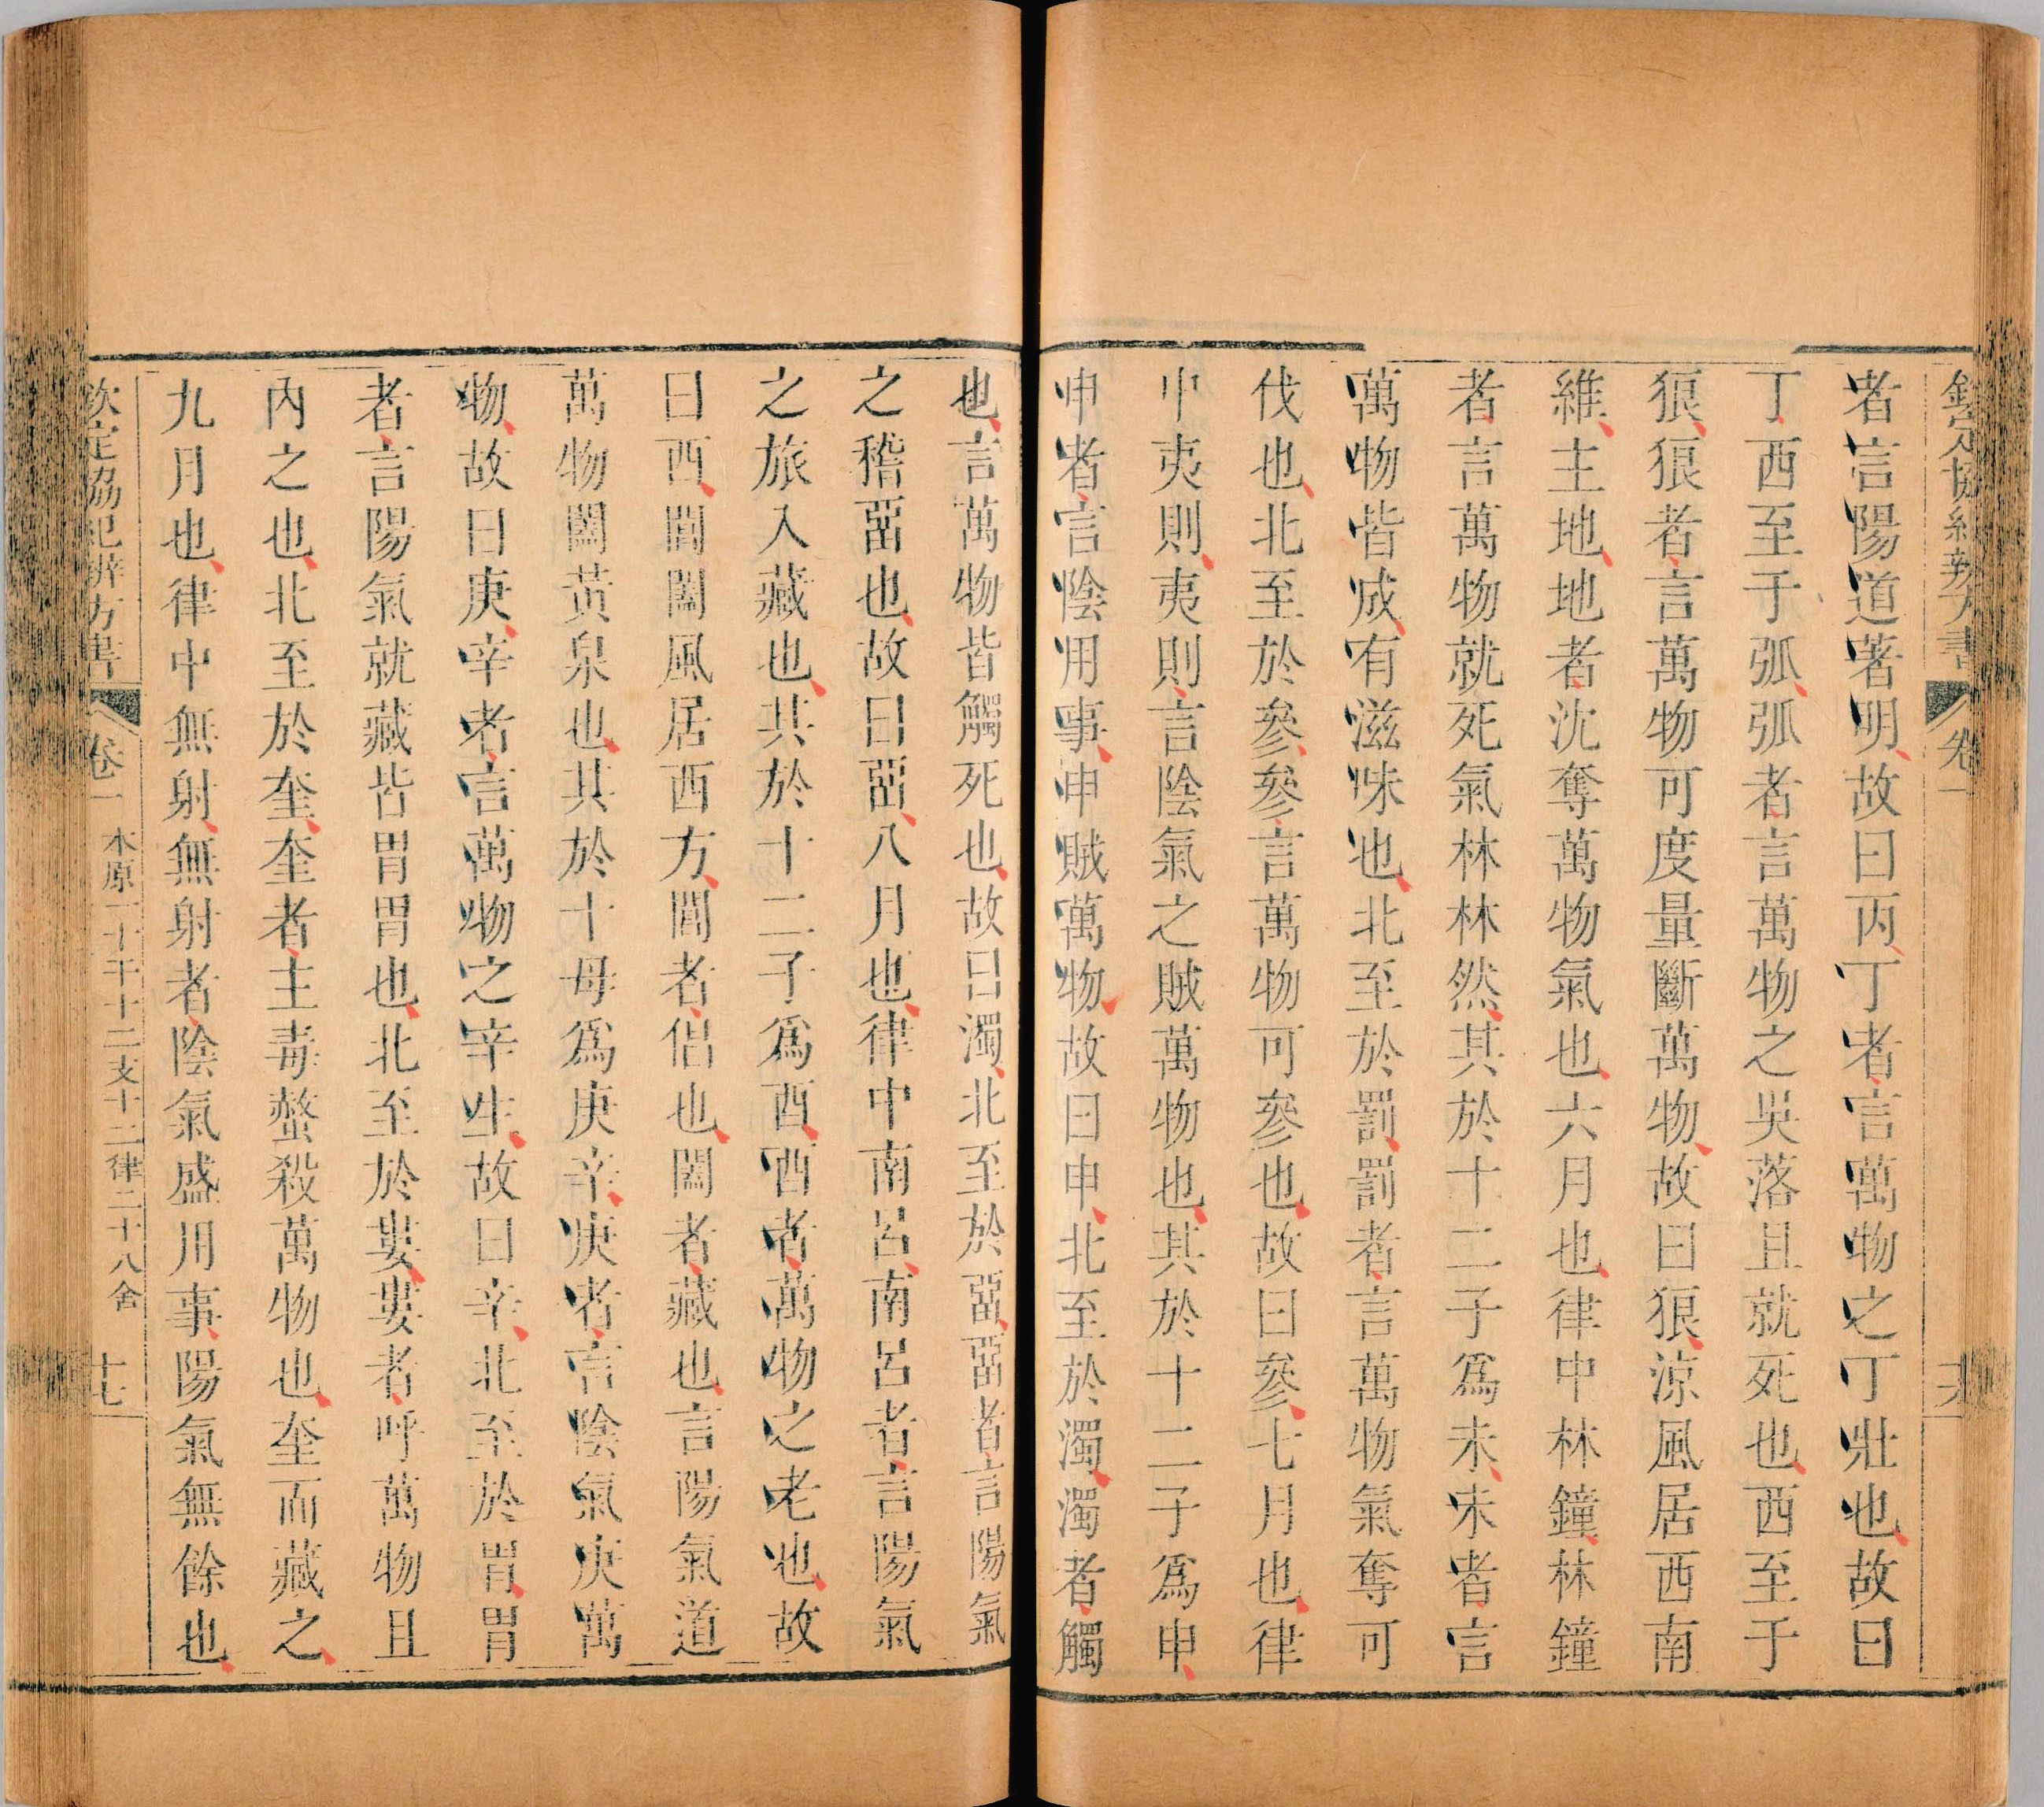 欽定協紀辨方書 卷一
者言陽道著明故曰丙丁者言萬物之丁壯也故曰
丁西至于弧弧者言萬物之吳落且就死也西至于
狼狼者言萬物可度量斷萬物故曰狼涼風居西南
維主地地者沈奪萬物氣也六月也律中林鐘林鐘
者言萬物就死氣林林然其於十二子爲未未者言
萬物皆成有滋味也北至於罰罰者言萬物氣奪可
伐也北至於參參言萬物可參也故曰參七月也律
中夷則夷則言陰氣之賊萬物也其於十二子爲申
申者言陰用事申賊萬物故曰申北至於濁濁者觸
也言萬物皆觸死也故曰濁北至於畱畱者言陽氣
之稽畱也故曰畱八月也律中南呂南呂者言陽氣
之旅入藏也其於十二子爲酉酉者萬物之老也故
曰酉閶闔風居西方閶者倡也闔者藏也言陽氣道
萬物闔黃泉也其於十母爲庚辛庚者言陰氣庚萬
物故曰庚辛者言萬物之辛生故曰辛北至於胃胃
者言陽氣就藏皆胃胃也北至於婁婁者呼萬物且
內之也北至於奎奎者主毒螫殺萬物也奎而藏之
九月也律中無射無射者陰氣盛用事陽氣無餘也
欽定協紀辨方書 卷一 本原一 十干十二支十二律二十八舍 十七